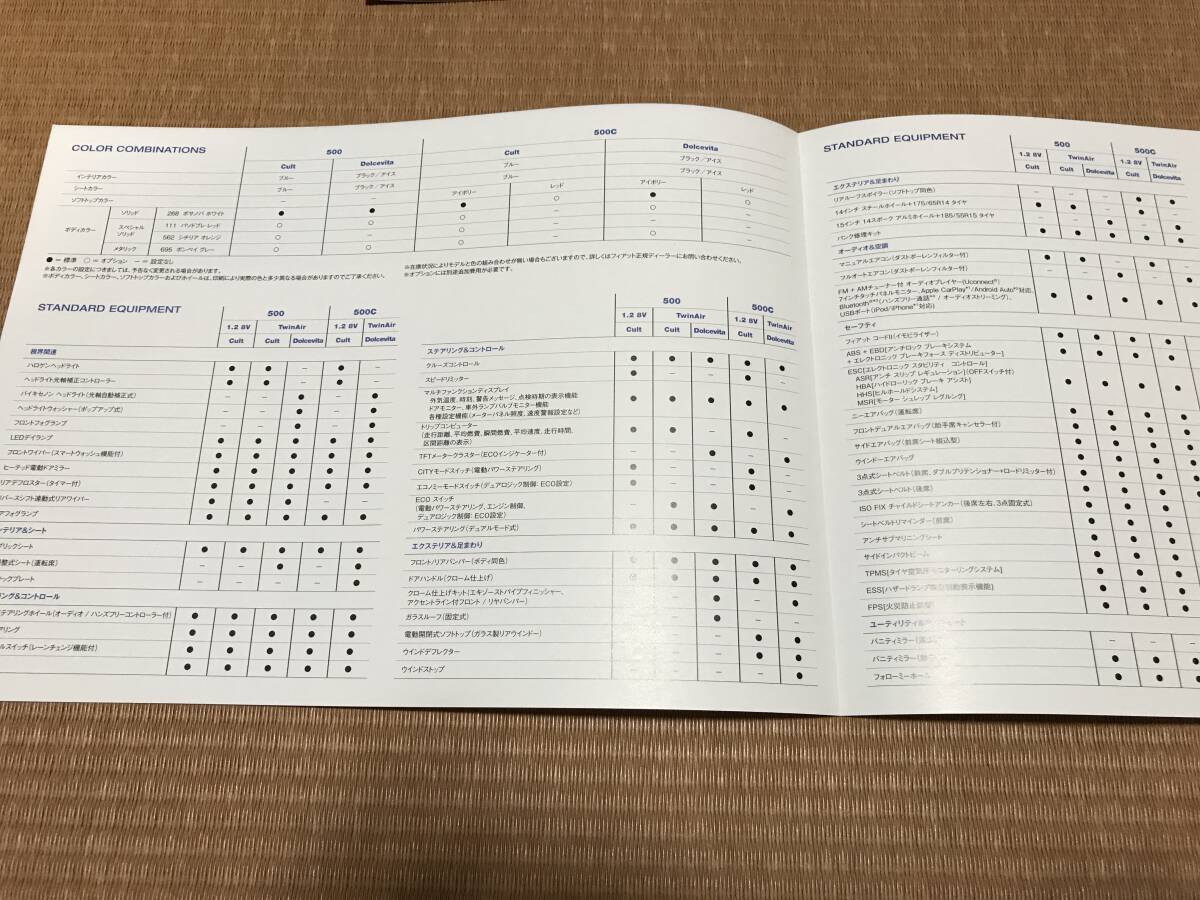 COLOR COMBINATIONS
500
500C
Cult
Dolcevita
Cult
Dolcevita
インテリアカラー
ブルー
ブラック／アイス
ブルー
ブラック／アイス
シートカラー
ブルー
ブラック／アイス
ブルー
ブラック／アイス
ソフトトップカラー
–
–
アイボリー
レッド
アイボリー
レッド
ボディカラー
ソリッド
268 ボサノバ ホワイト
● ● ● ○ ● ○
スペシャル
ソリッド
111 パソドブレ レッド
○ ○ ○ – ○ –
562 シチリア オレンジ
○ – ○ – – –
メタリック
695 ポンペイ グレー
○ ○ ○ – ○ –
● ＝ 標準 ○ ＝ オプション － ＝ 設定なし
※各カラーの設定につきましては、予告なく変更される場合があります。
※ボディカラー、シートカラー、ソフトトップカラーおよびホイールは、印刷により実際の色と多少異なる場合がありますのでご了承ください。
※在庫状況によりモデルと色の組み合わせが無い場合もございますので、詳しくはフィアット正規ディーラーにお問い合わせください。
※オプションには別途追加費用が必要です。
STANDARD EQUIPMENT
500
500C
1.2 8V
TwinAir
1.2 8V
TwinAir
Cult
Cult
Dolcevita
Cult
Dolcevita
視界関連
ハロゲンヘッドライト
● ● – ● –
ヘッドライト光軸補正コントローラー
● ● – ● –
バイキセノン ヘッドライト（光軸自動補正式）
– – ● – ●
ヘッドライトウォッシャー（ポップアップ式）
– – ● – ●
フロントフォグランプ
– – ● – ●
LEDデイランプ
● ● ● ● ●
フロントワイパー（スマートウォッシュ機能付）
● ● ● ● ●
ヒーテッド電動ドアミラー
● ● ● ● ●
リアデフロスター（タイマー付）
● ● ● ● ●
バースシフト連動式リアワイパー
● ● ● – –
アフォグランプ
● ● ● ● ●
ンテリア＆シート
ブリックシート
● ● ● ● ●
調整式シート（運転席）
– – ● – ●
ックプレート
– – – – ●
ング＆コントロール
テアリングホイール（オーディオ / ハンズフリーコントローラー付）
● ● ● ● ●
アリング
● ● ● ● ●
ルスイッチ（レーンチェンジ機能付）
● ● ● ● ●
● ● ● ● ●
500
500C
1.2 8V
TwinAir
1.2 8V
TwinAir
Cult
Cult
Dolcevita
Cult
Dolcevita
ステアリング＆コントロール
クルーズコントロール
● ● ● ● ●
スピードリミッター
● – – ● –
マルチファンクションディスプレイ
外気温度、時刻、警告メッセージ、点検時期の表示機能
ドアモニター、車外ランプバルブモニター機能
各種設定機能（メーターパネル照度、速度警報設定など）
● ● ● ● ●
トリップコンピューター
（走行距離、平均燃費、瞬間燃費、平均速度、走行時間、
区間距離の表示）
● ● – ● –
TFTメータークラスター（ECOインジケーター付）
– – ● – ●
CITYモードスイッチ（電動パワーステアリング）
● – – ● –
エコノミーモードスイッチ（デュアロジック制御：ECO設定）
● – – ● –
ECO スイッチ
（電動パワーステアリング、エンジン制御、
デュアロジック制御：ECO設定）
– ● ● – ●
パワーステアリング（デュアルモード式）
● ● ● ● ●
エクステリア＆足まわり
フロント/リアバンパー（ボディ同色）
● ● ● ● ●
ドアハンドル（クローム仕上げ）
● ● ● ● ●
クローム仕上げキット（エキゾーストパイプフィニッシャー、
アクセントライン付フロント / リヤバンパー）
– – ● – ●
ガラスルーフ（固定式）
– – ● – –
電動開閉式ソフトトップ（ガラス製リアウインドー）
– – – ● ●
ウインドデフレクター
– – – ● ●
ウインドストップ
– – – – ●
STANDARD EQUIPMENT
500
500C
1.2 8V
TwinAir
1.2 8V
TwinAir
Cult
Cult
Dolcevita
Cult
Dolcevita
エクステリア＆足まわり
リアルーフスポイラー（ソフトトップ同色）
– – – ● ●
14インチ スチールホイール＋175/65R14 タイヤ
● ● – ● –
15インチ 14スポーク アルミホイール＋185/55R15 タイヤ
– – ● – ●
パンク修理キット
● ● ● ● ●
オーディオ＆空調
マニュアルエアコン（ダストポーレンフィルター付）
● ● – ● –
フルオートエアコン（ダストポーレンフィルター付）
– – ● – ●
FM + AMチューナー付 オーディオプレイヤー（Uconnect®）
7インチタッチパネルモニター、Apple CarPlay / Android Auto 対応、
Bluetooth®（ハンズフリー通話 / オーディオストリーミング）、
USBポート（iPod/iPhone 対応）
● ● ● ● ●
セーフティ
フィアット コードII（イモビライザー）
● ● ● ● ●
ABS + EBD[アンチロック ブレーキシステム
+ エレクトロニック ブレーキフォース ディストリビューター]
● ● ● ● ●
ESC[エレクトロニック スタビリティ コントロール]
ASR[アンチ スリップ レギュレーション]（OFFスイッチ付）
HBA[ハイドローリック ブレーキ アシスト]
HHS[ヒルホールドシステム]
MSR[モーター シュレップ レグルング]
● ● ● ● ●
ニーエアバッグ（運転席）
フロントデュアルエアバッグ（助手席キャンセラー付）
サイドエアバッグ（前席シート組込型）
ウインドーエアバッグ
3点式シートベルト（前席、ダブルプリテンショナー＋ロードリミッター付）
3点式シートベルト（後席）
ISO FIX チャイルドシートアンカー（後席左右、3点固定式）
シートベルトリマインダー（前席）
アンチサブマリニングシート
サイドインパクトビーム
TPMS[タイヤ空気圧モニターリングシステム]
ESS[ハザードランプ
動表示機能]
FPS[火災防止
ユーティリティ＆
バニティミラー
– – –
バニティミラー
● ● ●
フォローミーホー
● ● ●